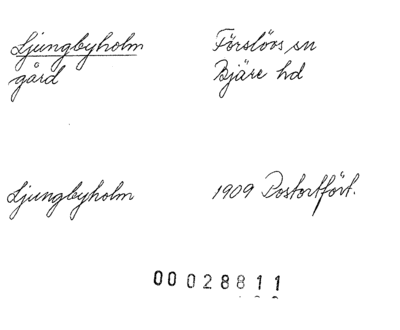 Ljungbyholm
gård
Förslövs sn
Bjäre hd
Ljungbyholm
1909 Postortfört.
00028811